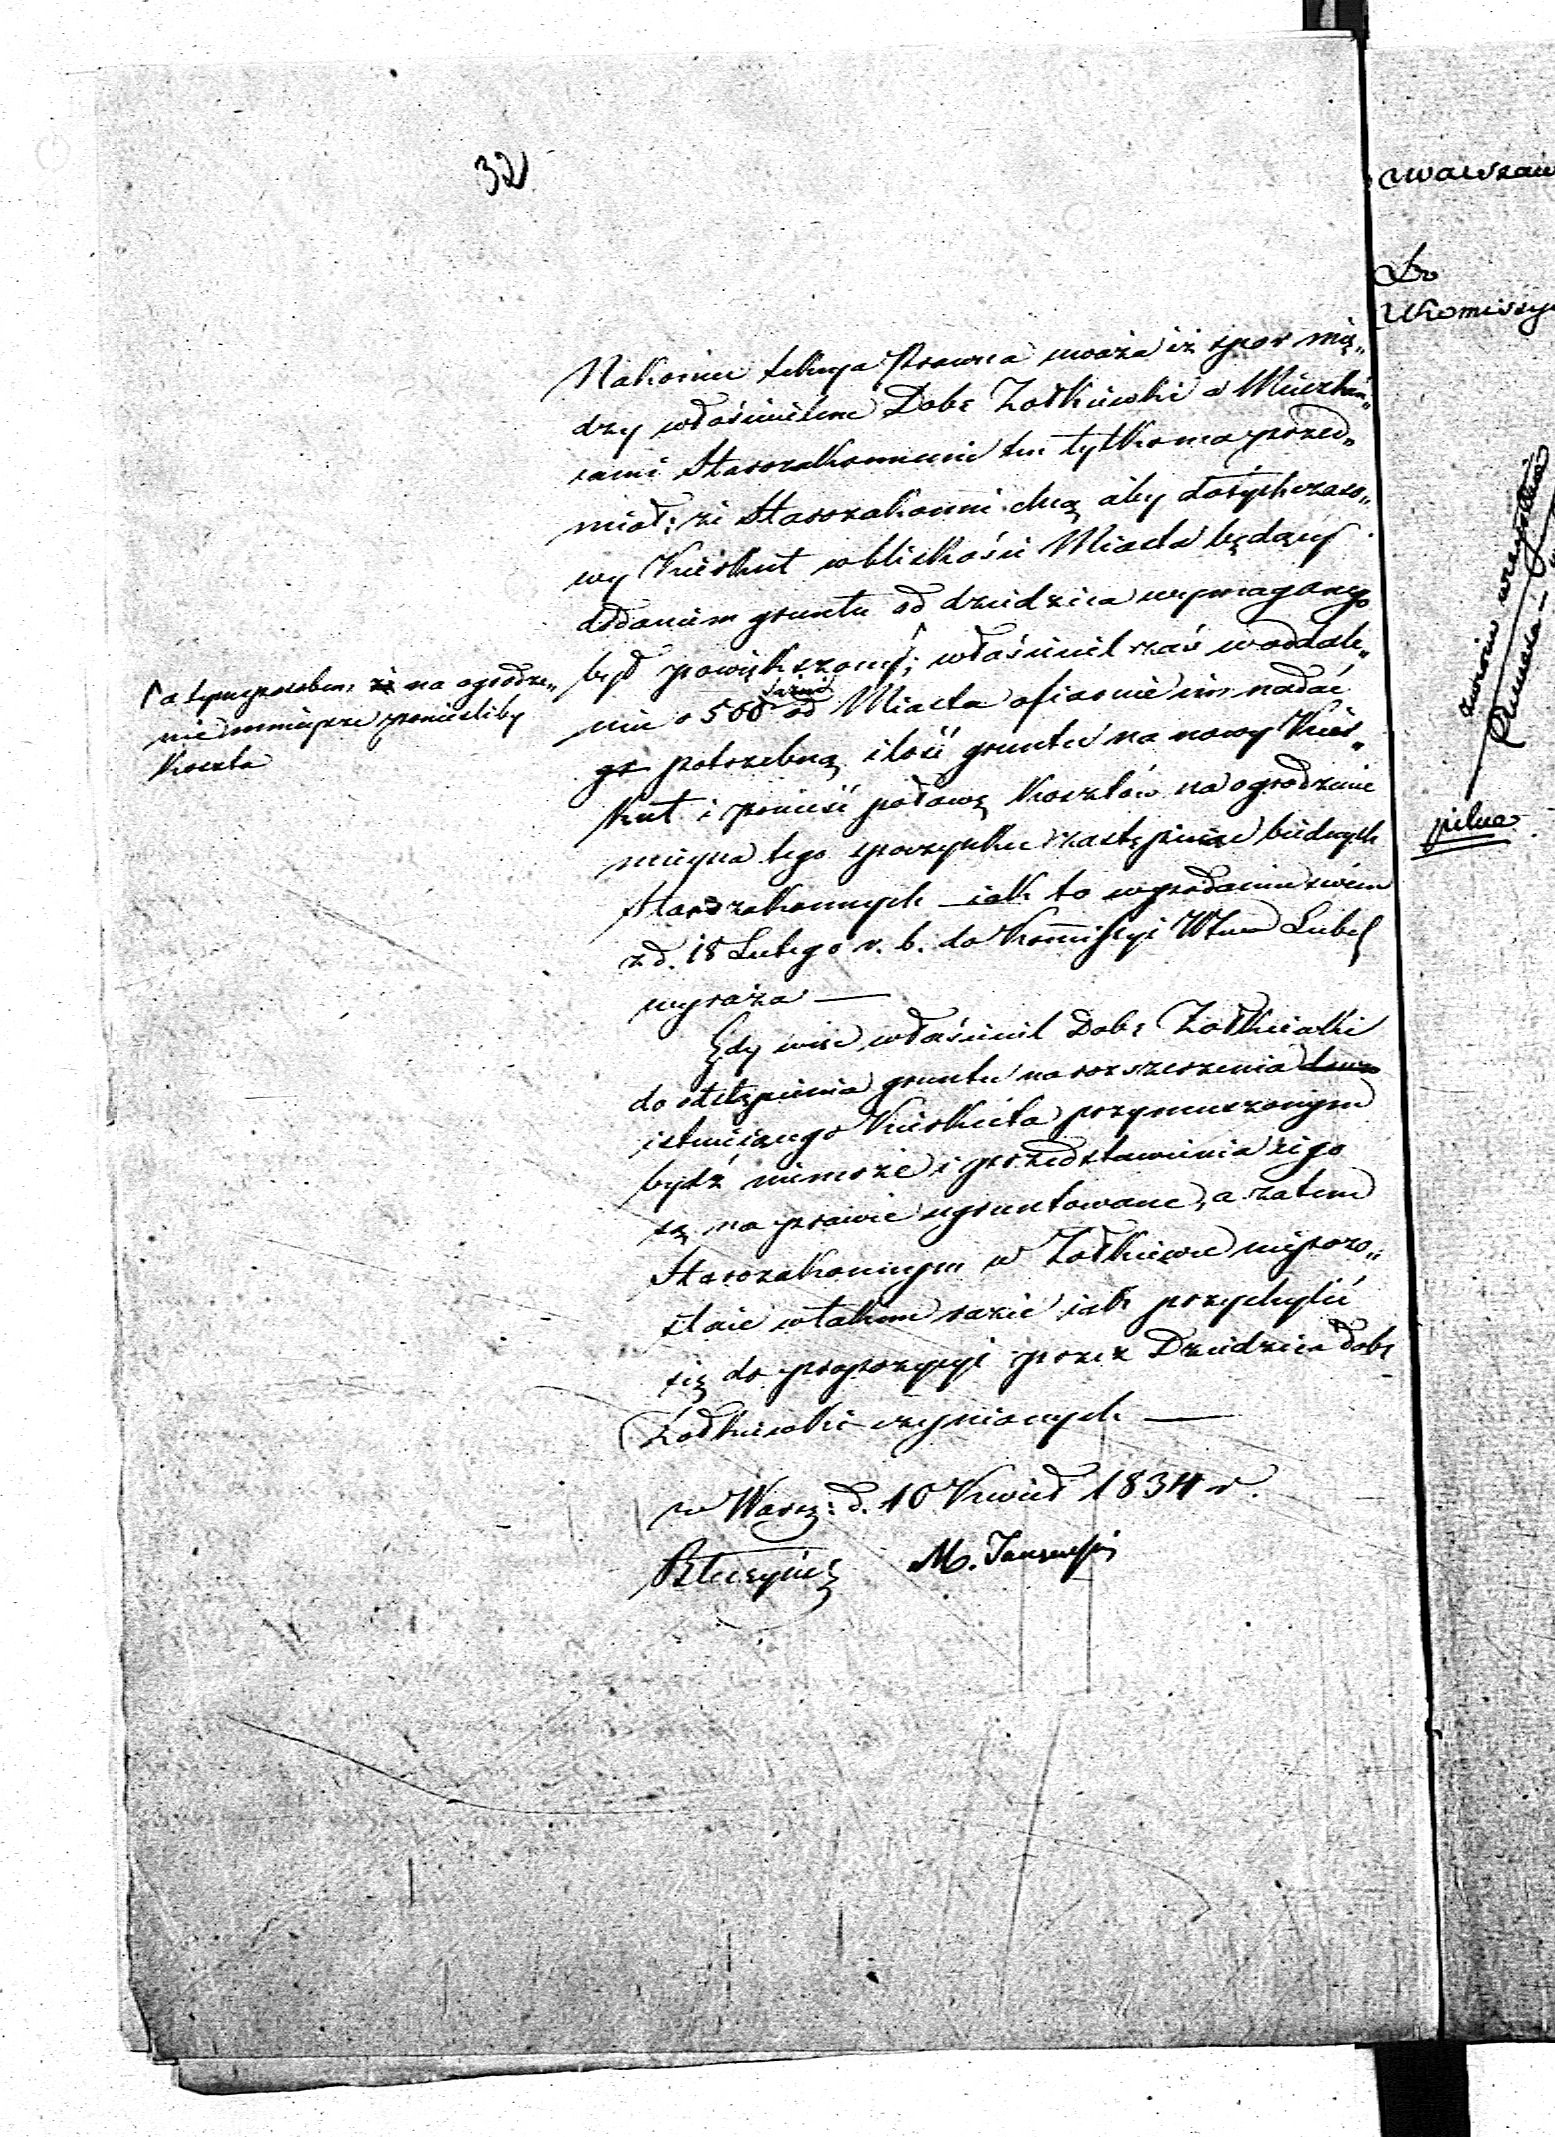 32
Nakoniec Sekcya Prawna uważa iż spor mię„
dzy właścicielem Dobr Zołkiewki a Mieszkań„
cami Starozakonnemi ten tylko ma przed„
miot: że Starozakonni chcą aby dotychczaso„
wy Kierkut w bliskości Miasta będący
dodaniem gruntu od dziedzica wymaganego
był powiększony; właściciel zaś w oddale„
niu o 500 sążni od Miasta ofiaruie im nadać
potrzebną ilość gruntu na nowy Kier„
kut i ponieść połowę kosztów na ogrodzenie
mieysca tego spoczynku zastępuiąc biednych
Starozakonnych – iak to w podaniu swém
z d. 18 Lutego r. b. do Kommissyi Wtwa Lubel
wyraża —
Gdy więc właściciel Dobr Zołkiewki
do odstąpienia gruntu na rozszerzenia
istnieiącego Kierkuta przymuszonym
bydź niemoże i przedstawienia iego
są na prawie ugruntowane, a zatem
Starozakonnym w Zołkiewce niepozo„
staie w takim razie iak przychylić
się do propozycyi przez Dziedzica dobr
Zołkiewki czynionych —
w Warsz: d. 10 Kwiet 1834 r.
M.
a tym sposobem na ogrodze„
nie mnieysze ponieśliby
koszta
Do
Kommissyi
pilne